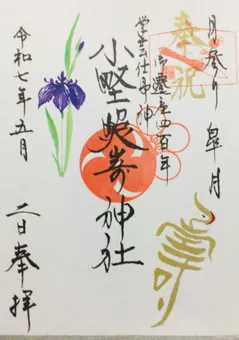 月参り 皐月
奉祝
御遷座四百年
寿
学芸仕事神
小埜照嵜神社
令和七年五月
二日奉拝